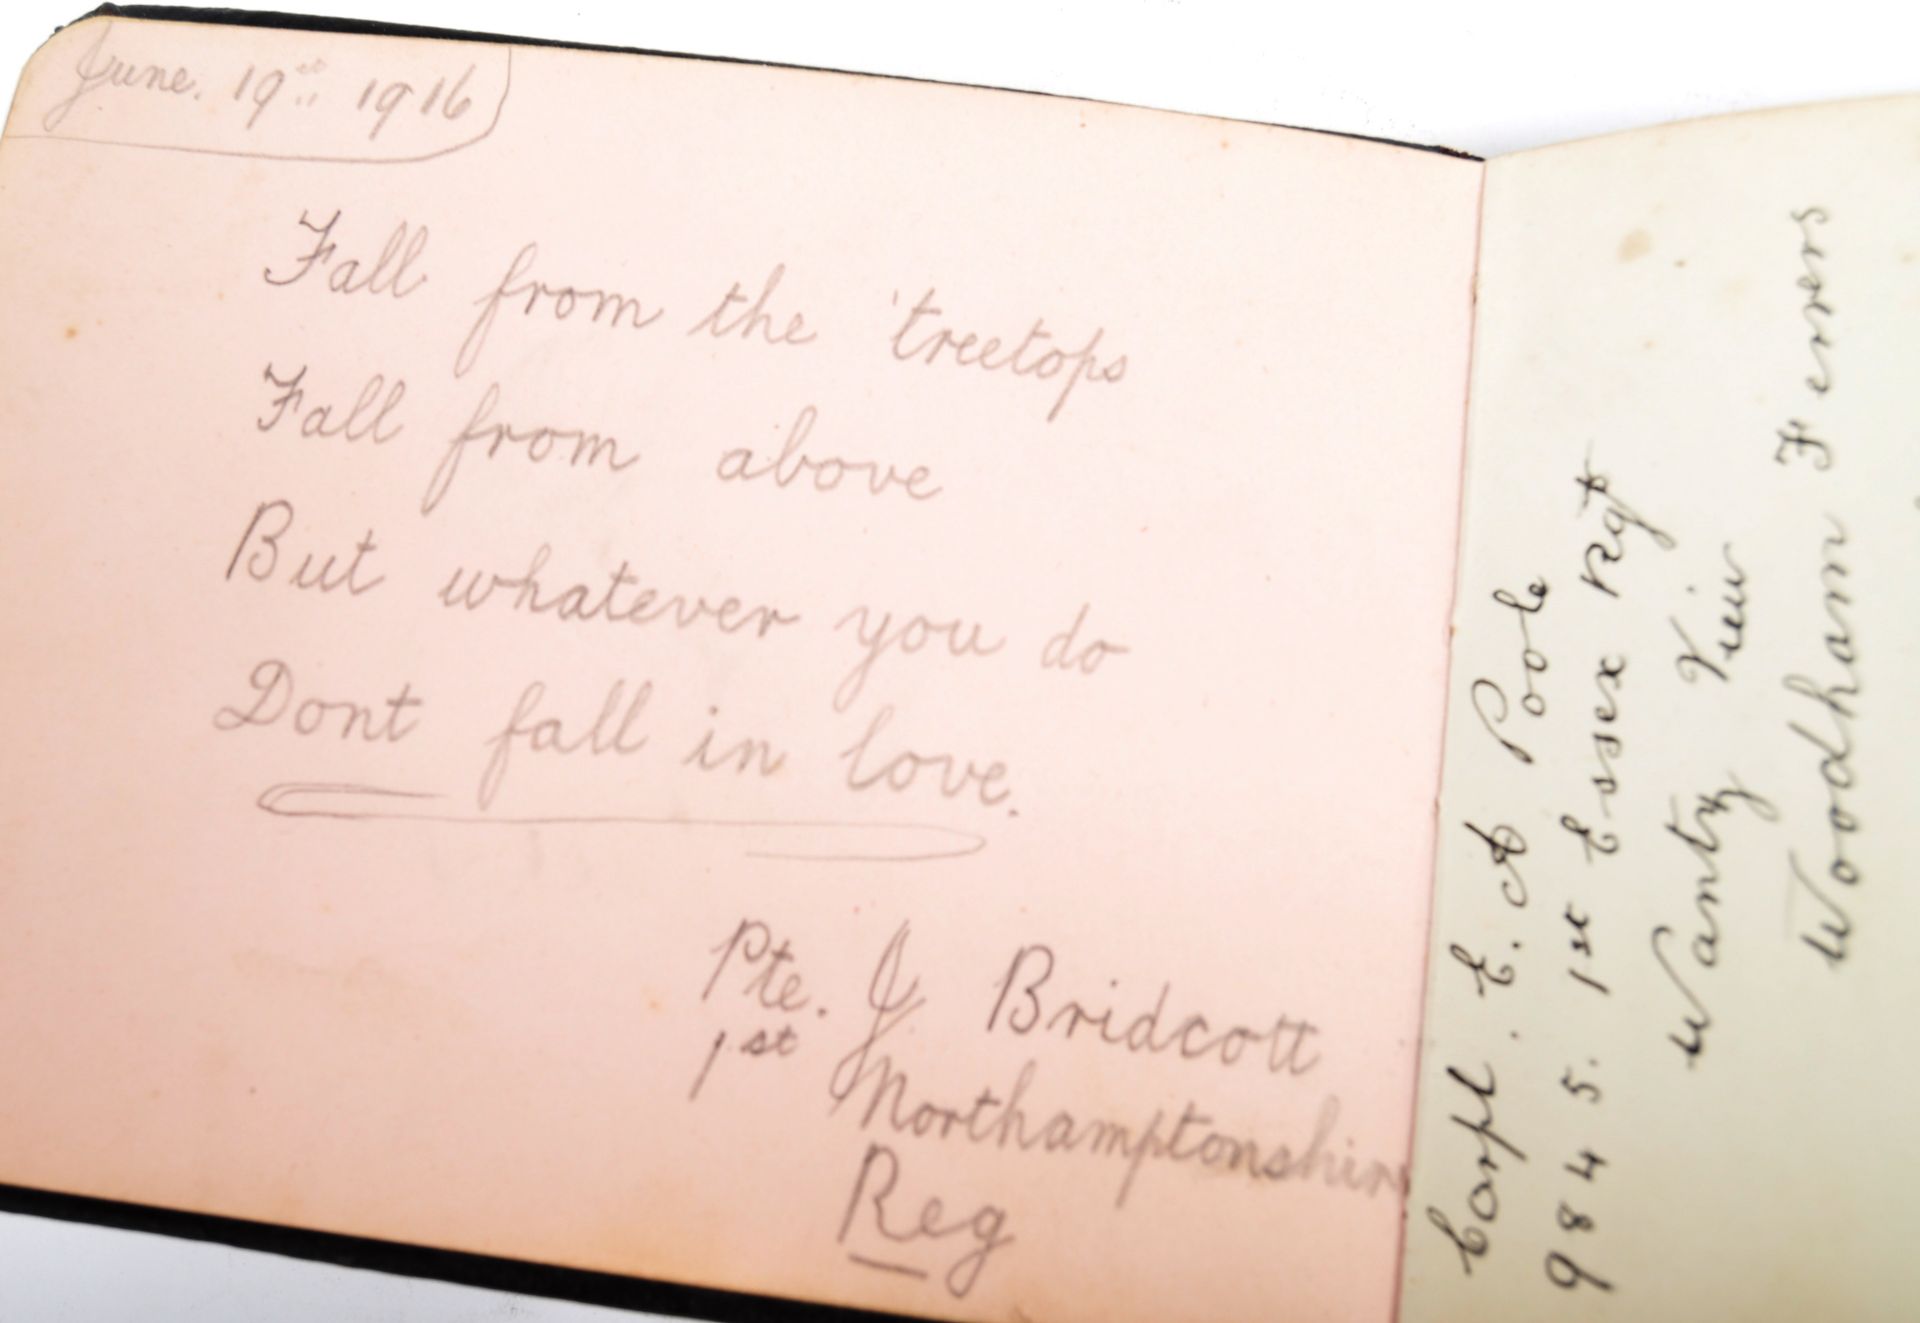 June. 19th 1916
Fall from the treetops
Fall from above
But whatever you do
Dont fall in love.
Pte. J Bridcott
1st Northamptonshire
Reg
Corpl. E. A Poole
9845. 1st Essex Rgt
Wantz View
Woodham Ferrers